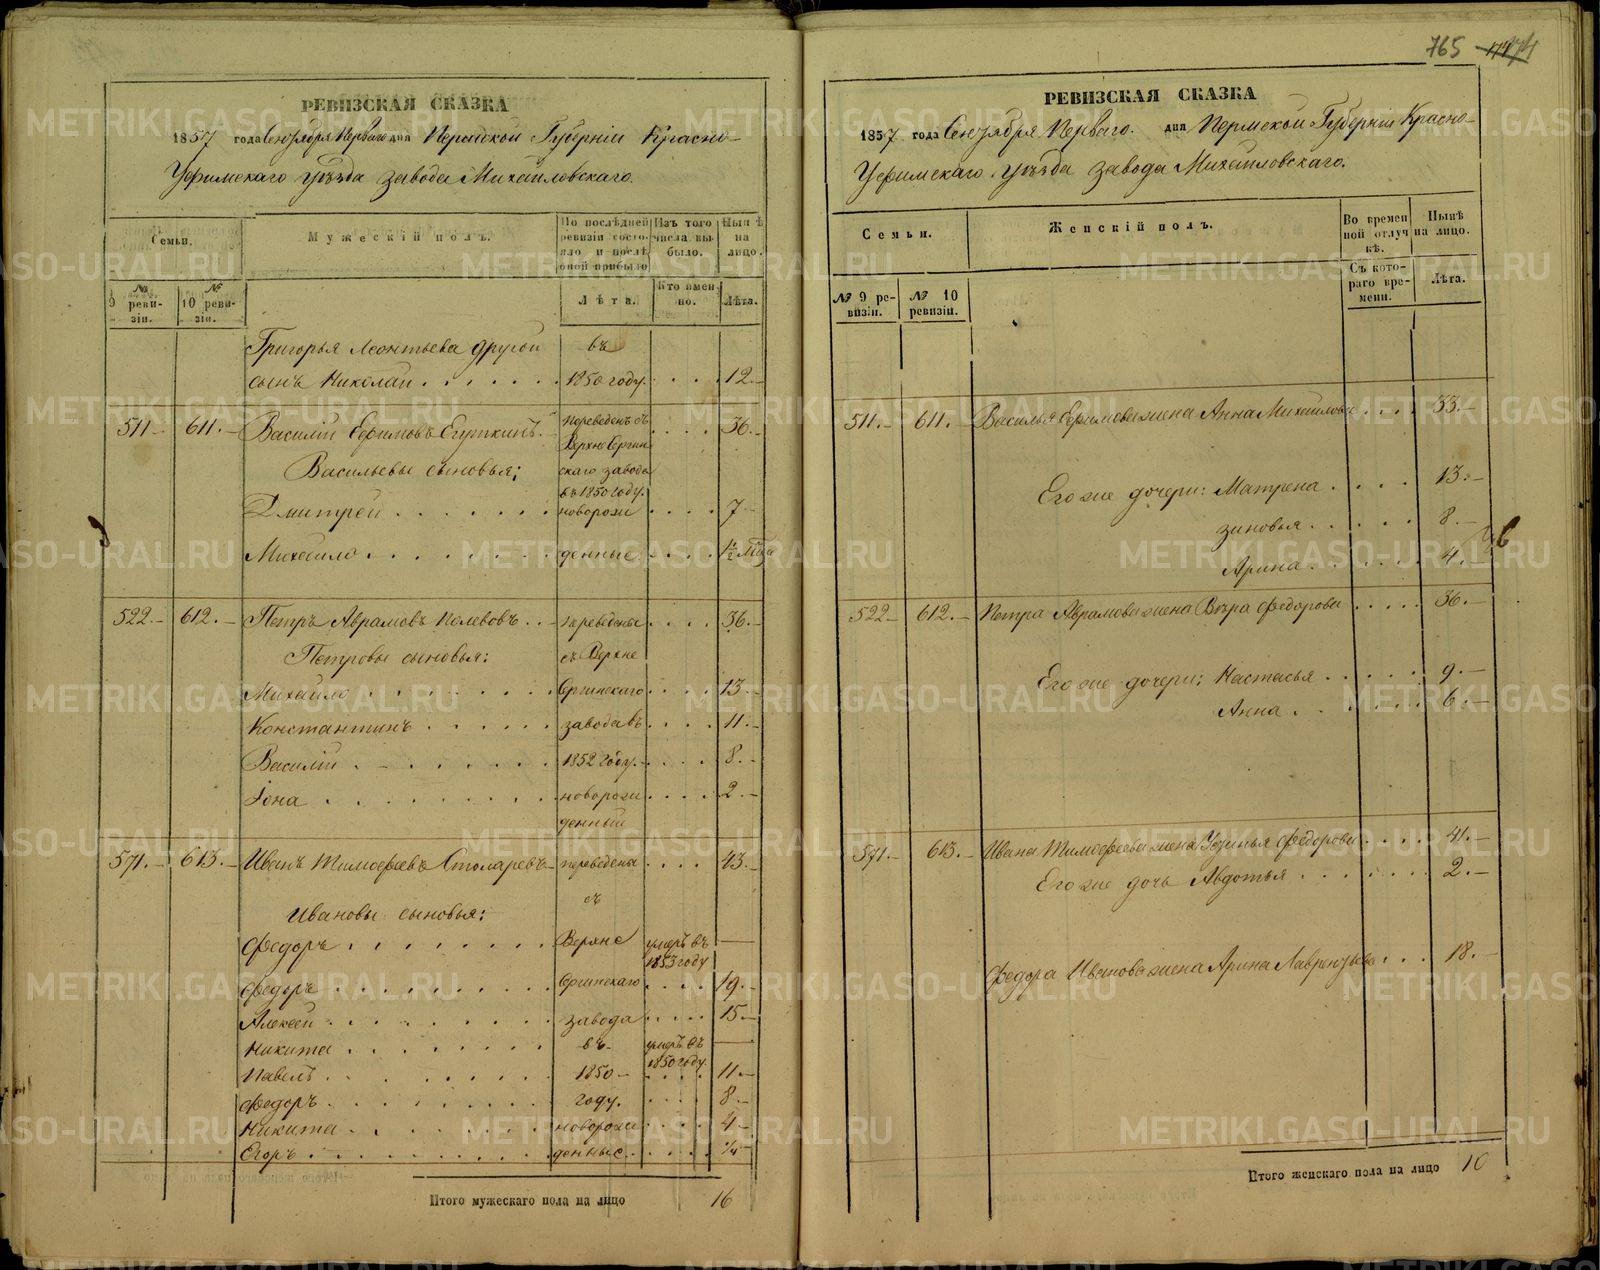 РЕВИЗСКАЯ СКАЗКА
1857 года Сентября Перваго дня Пермской Губерніи Красно-
Уфимскаго уѣзда завода Михайловскаго.
Семьи.
Мужескій полъ.
По послѣдней ревизіи состояло и послѣ оной прибыло
Изъ того числа выбыло.
Нынѣ на лицо.
№ 9 ревизіи.
№ 10 ревизіи.
Лѣта.
Кто именно.
Лѣта.
Григорья Леонтьева другой въ
сынъ Николай 1850 году. 12.
511 611. Василій Ефимовъ переведенъ съ 36.
Верхне Сергин
Васильевы сыновья: скаго завода
въ 1850 году.
Дмитрей новорож 7
Михайло денные
522. 612. Петръ Аврамовъ Полевовъ переведены 36.
Петровы сыновья: съ Верхне
Михайло Сергинскаго 13
Константинъ завода въ 11.
Василій 1852 году. 8.
Іона новорож 2
денный
571. 613. Иванъ Тимофеевъ Столяровъ переведены 43.
съ
Ивановы сыновья:
Федоръ Верхне умеръ въ
1853 году
Федоръ Сергинскаго 19.
Алексей завода 15.
Никита въ умеръ въ
1850 году.
Павелъ 1850 11.
Федоръ году. 8
Никита новорож 4
Егоръ денные 1/4
Итого мужескаго пола на лицо 16
765 174
РЕВИЗСКАЯ СКАЗКА
1857 года Сентября Перваго. дня Пермской Губерніи Красно-
Уфимскаго уѣзда завода Михайловскаго.
Семьи.
Женскій полъ.
Во временной отлучкѣ.
Нынѣ на лицо.
№ 9 ревизіи.
№ 10 ревизіи.
Съ котораго времени.
Лѣта.
511. 611. Василья Ефимова жена Анна Михайлова 33.
Его же дочери: Матрена 13.
Зиновья 8.
Арина 4.
522 612. Петра Аврамова жена Вѣра Федорова 36.
Его же дочери: Настасья 9.
Анна 6.
571. 613. Ивана Тимофеева жена Устинья Федорова 41.
Его же дочь Авдотья 2.
Федора Иванова жена Арина Лаврентьева 18.
Итого женскаго пола на лицо 10
METRIKI.GASO-URAL.RU